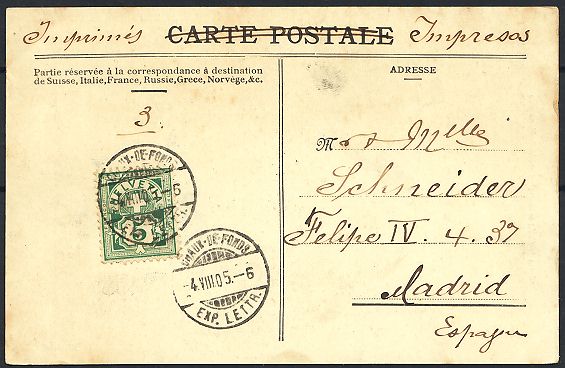 Imprimés CARTE POSTALE Impresos
Partie réservée à la correspondance à destination
de Suisse, Italie, France, Russie, Grece, Norvège, &c.
ADRESSE
3.
M et Melle
Schneider
Felipe IV. 4. 3º
Madrid
Espagne
HELVETIA
5
CHAUX-DE-FONDS
-4.VIII.05.-6
EXP. LETTR.